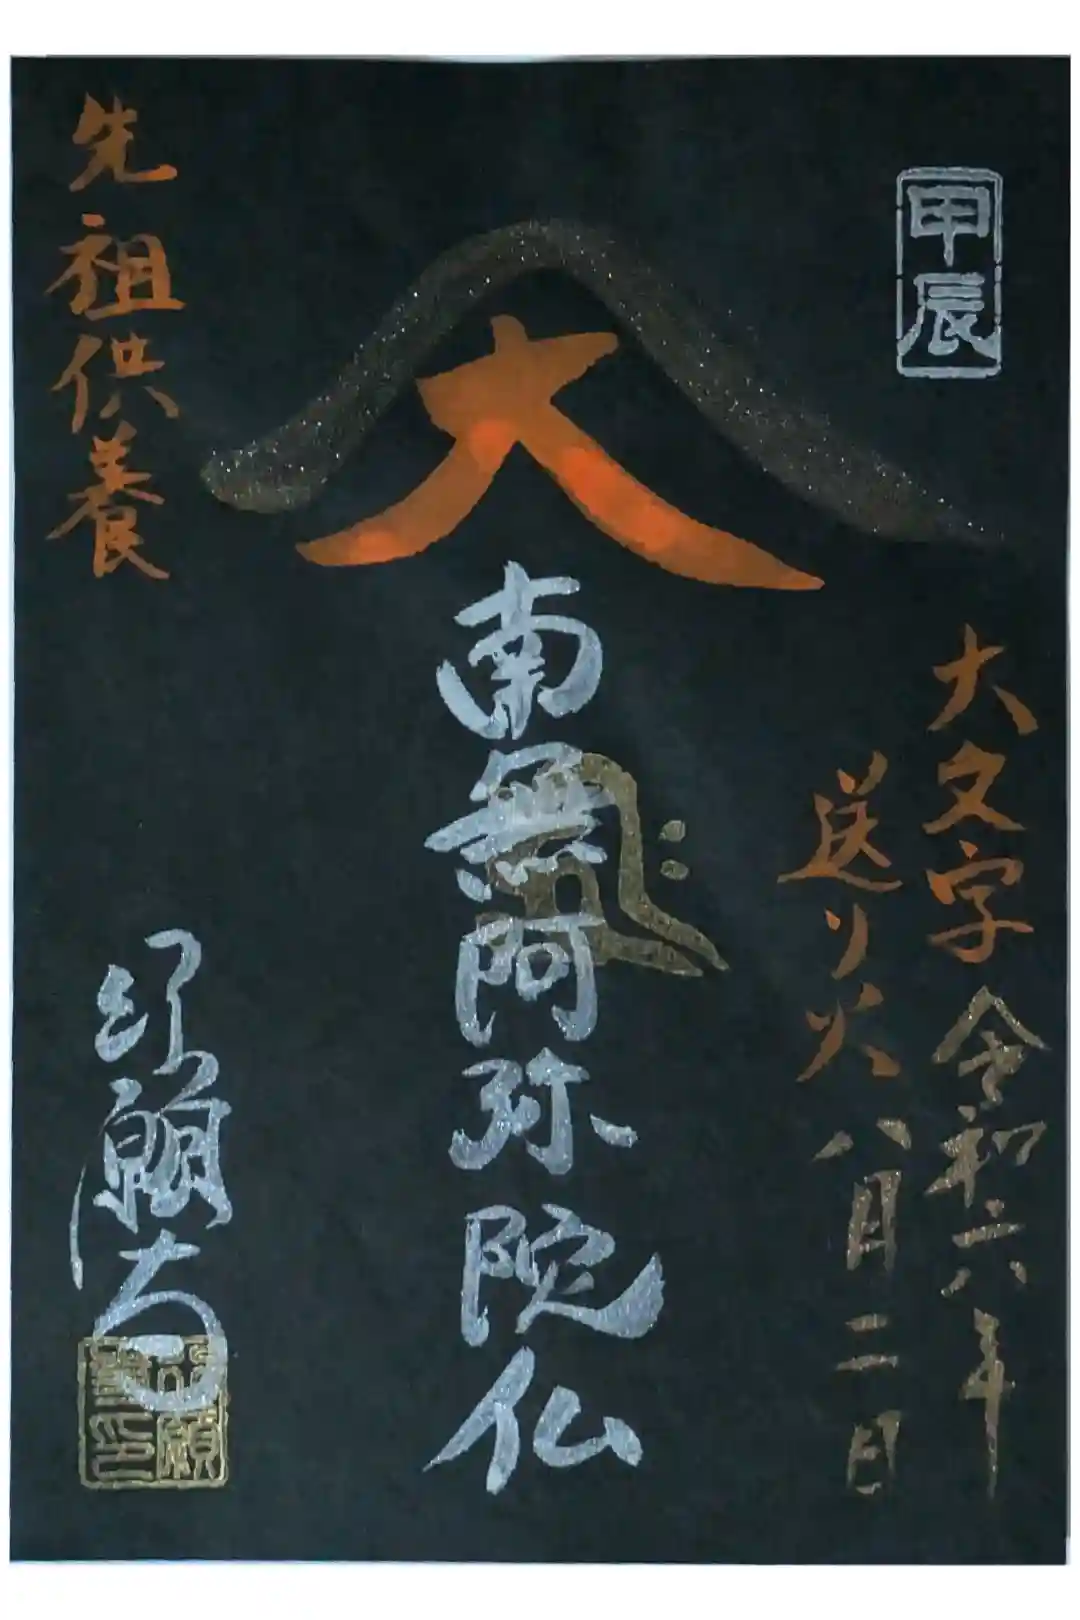 甲辰
大文字
送り火
令和六年
八月二日
大
南無阿弥陀仏
先祖供養